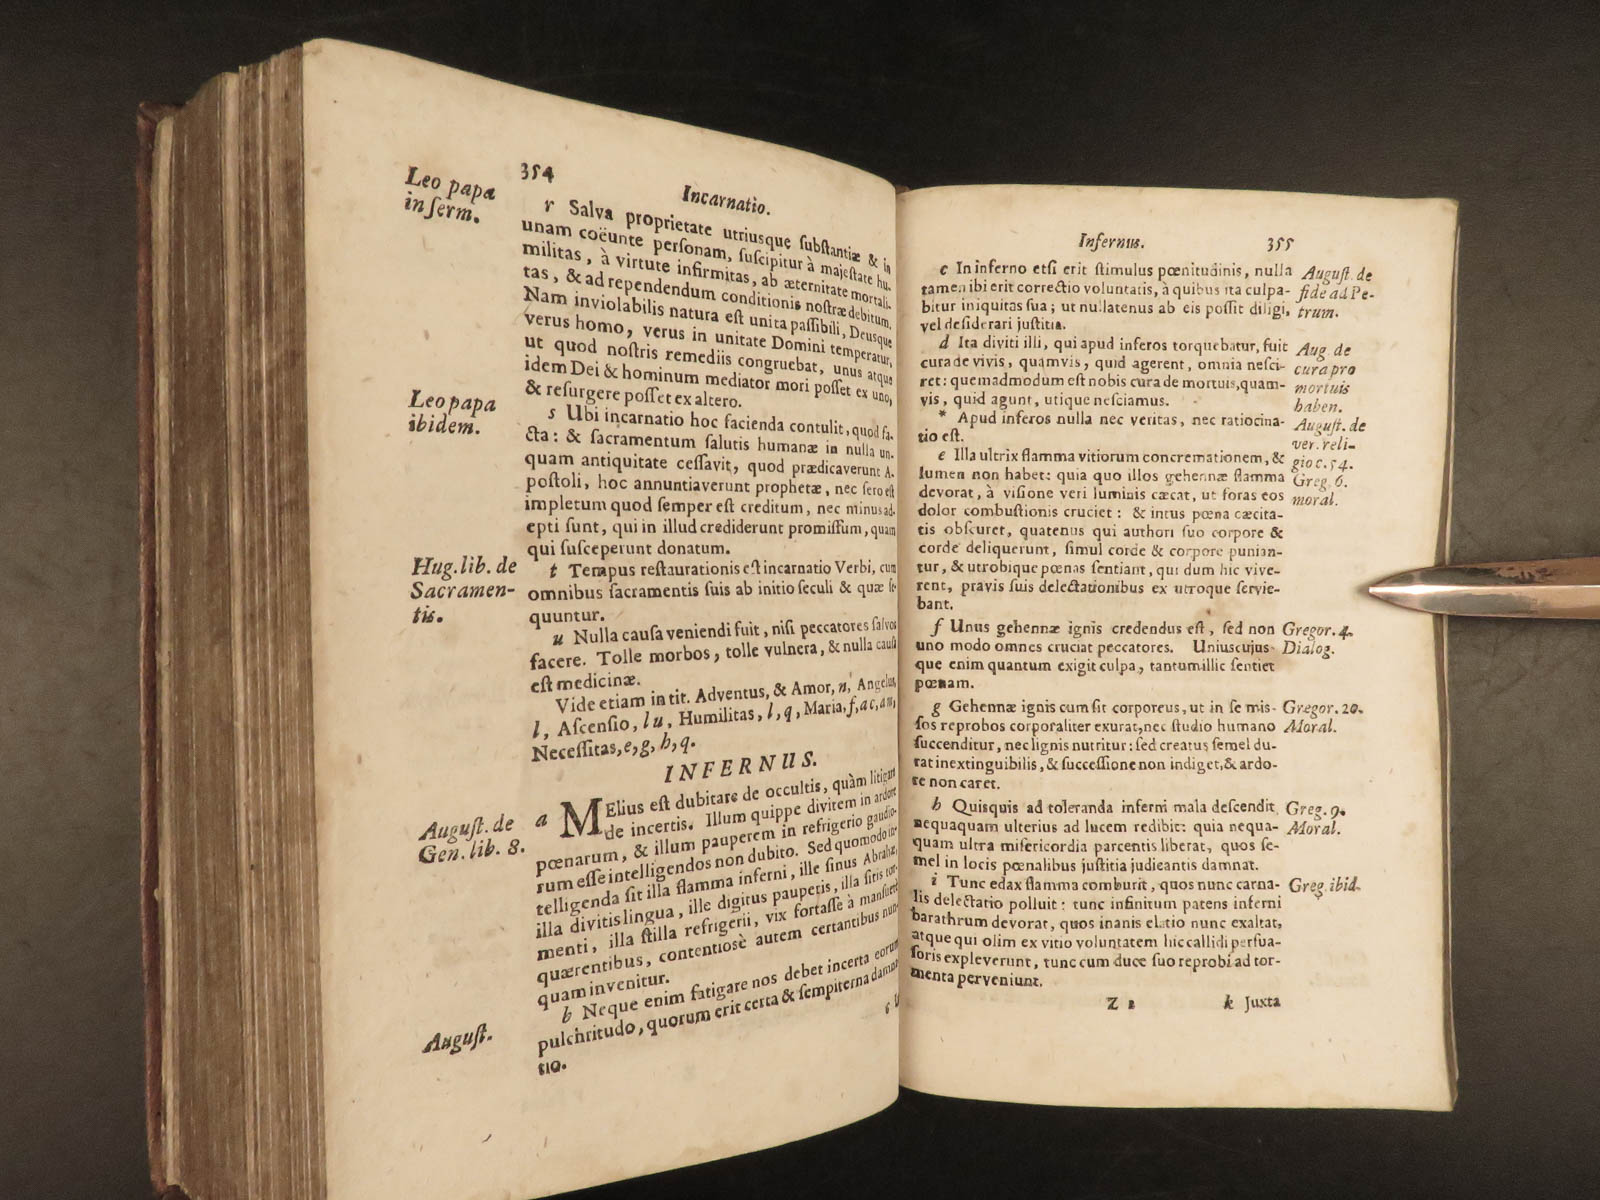 354
Incarnatio.
Leo papa
in ſerm.
r Salva proprietate utriusque ſubſtantiæ & in
unam coëunte perſonam, ſuſcipitur à majeſtate hu-
militas, à virtute infirmitas, ab æternitate mortali-
tas, & ad rependendum conditionis noſtræ debitum,
Nam inviolabilis natura eſt unita paſſibili, Deusque
verus homo, verus in unitate Domini temperatur,
ut quod noſtris remediis congruebat, unus atque
idem Dei & hominum mediator mori poſſet ex uno,
& reſurgere poſſet ex altero.
Leo papa
ibidem.
s Ubi incarnatio hoc facienda contulit, quod fa-
cta: & ſacramentum ſalutis humanæ in nulla un-
quam antiquitate ceſſavit, quod prædicaverunt A-
poſtoli, hoc annuntiaverunt prophetæ, nec ſero eſt
impletum quod ſemper eſt creditum, nec minus ad-
epti ſunt, qui in illud crediderunt promiſſum, quam
qui ſuſceperunt donatum.
Hug. lib. de
Sacramen-
tis.
t Tempus reſtaurationis eſt incarnatio Verbi, cum
omnibus ſacramentis ſuis ab initio ſeculi & quæ ſe-
quuntur.
u Nulla cauſa veniendi fuit, niſi peccatores ſalvos
facere. Tolle morbos, tolle vulnera, & nulla cauſa
eſt medicinæ.
Vide etiam in tit. Adventus, & Amor, n, Angelus,
l, Aſcenſio, l u, Humilitas, l, q, Maria, f, ac, am,
Neceſſitas, e, g, h, q.
INFERNUS.
Auguſt. de
Gen. lib. 8.
a MElius eſt dubitare de occultis, quàm litigare
de incertis. Illum quippe divitem in ardore
pœnarum, & illum pauperem in refrigerio gaudio-
rum eſſe intelligendos non dubito. Sed quomodo in-
telligenda ſit illa flamma inferni, ille ſinus Abrahæ,
illa divitis lingua, ille digitus pauperis, illa ſitis tor-
menti, illa ſtilla refrigerii, vix fortaſſe à manſuetè
quærentibus, contentioſè autem certantibus nun-
quam invenitur.
Auguſt.
b Neque enim fatigare nos debet incerta eorum
pulchritudo, quorum erit certa & ſempiterna damna-
tio.
Infernus.
355
c In inferno etſi erit ſtimulus pœnitudinis, nulla
tamen ibi erit correctio voluntatis, à quibus ita culpa-
bitur iniquitas ſua; ut nullatenus ab eis poſſit diligi,
vel deſiderari juſtitia.
Auguſt. de
fide ad Pe-
trum.
d Ita diviti illi, qui apud inferos torquebatur, fuit
cura de vivis, quamvis, quid agerent, omnia neſci-
ret: quemadmodum eſt nobis cura de mortuis, quam-
vis, quid agunt, utique neſciamus.
Aug. de
cura pro
mortuis
haben.
* Apud inferos nulla nec veritas, nec ratiocina-
tio eſt.
Auguſt. de
ver. reli-
gio c. 54.
e Illa ultrix flamma vitiorum concremationem, &
lumen non habet: quia quo illos gehennæ flamma
devorat, à viſione veri luminis cæcat, ut foras eos
dolor combuſtionis cruciet: & intus pœna cæcita-
tis obſcuret, quatenus qui authori ſuo corpore &
corde deliquerunt, ſimul corde & corpore punian-
tur, & utrobique pœnas ſentiant, qui dum hic vive-
rent, pravis ſuis delectationibus ex utroque ſervie-
bant.
Greg. 6.
moral.
f Unus gehennæ ignis credendus eſt, ſed non
uno modo omnes cruciat peccatores. Uniuscujus-
que enim quantum exigit culpa, tantum illic ſentiet
pœnam.
Gregor. 4.
Dialog.
g Gehennæ ignis cum ſit corporeus, ut in ſe miſ-
ſos reprobos corporaliter exurat, nec ſtudio humano
ſuccenditur, nec lignis nutritur: ſed creatus ſemel du-
rat inextinguibilis, & ſucceſſione non indiget, & ardo-
re non caret.
Gregor. 20.
Moral.
h Quisquis ad toleranda inferni mala deſcendit,
nequaquam ulterius ad lucem redibit: quia nequa-
quam ultra miſericordia parcentis liberat, quos ſe-
mel in locis pœnalibus juſtitia judicantis damnat.
Greg. 9.
Moral.
i Tunc edax flamma comburit, quos nunc carna-
lis delectatio polluit: tunc infinitum patens inferni
barathrum devorat, quos inanis elatio nunc exaltat,
atque qui olim ex vitio voluntatem hic callidi perſua-
ſoris expleverunt, tunc cum duce ſuo reprobi ad tor-
menta perveniunt.
Greg. ibid.
Z 2
k Juxta